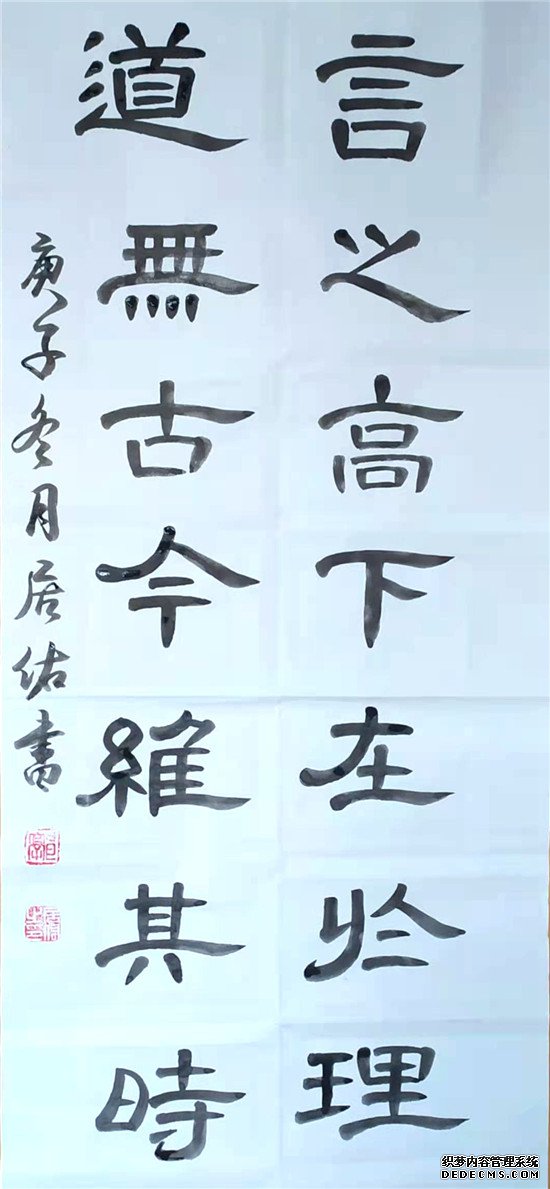 言之高下在於理
道無古今維其時
庚子冬月居佑書
织梦内容管理系统
DEDECMS.COM